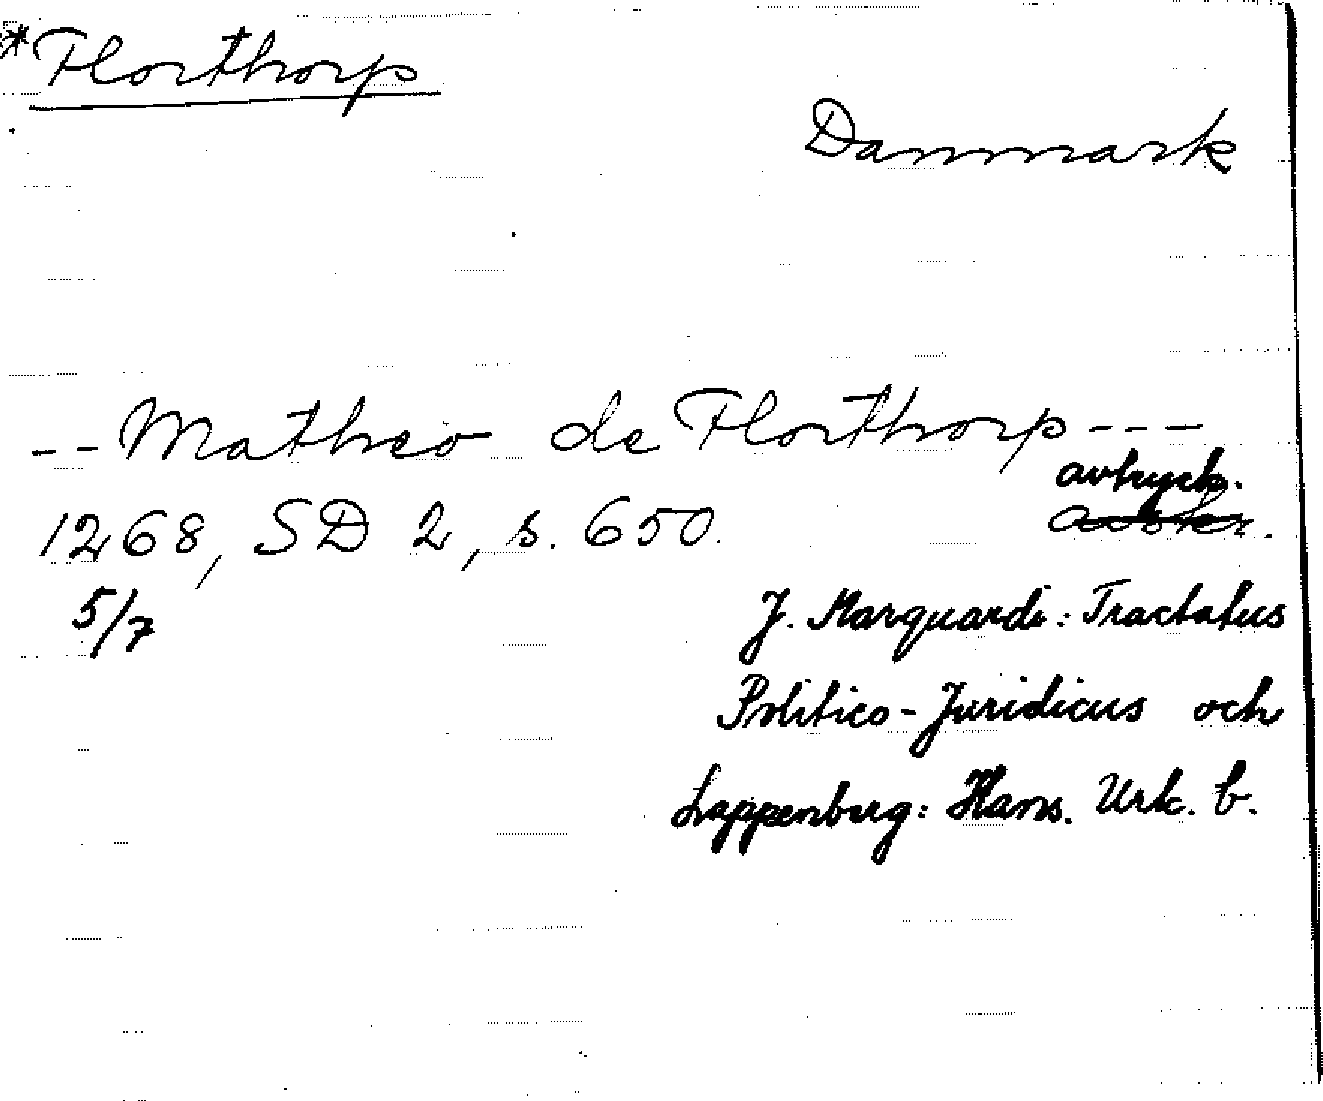 *Florthorp
Danmark
-- Matheo de Florthorp ---
avtryck.
1268, SD 2, s. 650. avskr.
5/7
J. Marquardi: Tractatus
Politico-Juridicus och
Lappenberg: Hans. Urk. b.